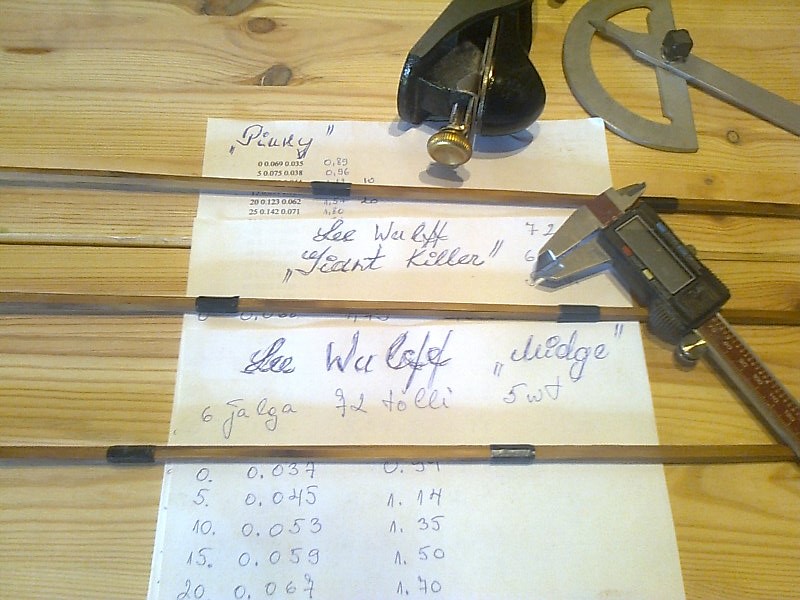 „Pinky"
0 0.069 0.035 0,89
5 0.075 0.038 0,96
10
20 0.123 0.062 20
25 0.142 0.071 1,80
Lee Wulff 72
„Giant Killer" 6
Lee Wulff „Midge"
6 jalga 72 tolli 5wt
0. 0.037
5. 0.045 1.14
10. 0.053 1.35
15. 0.059 1.50
20 0.067 1.70